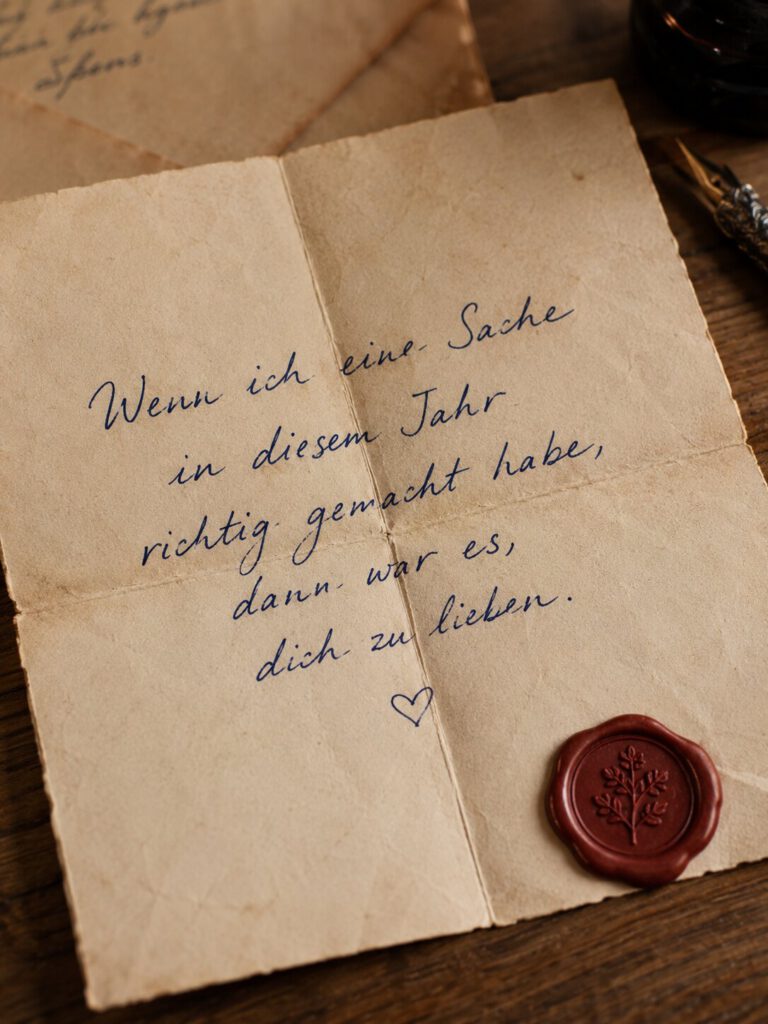 Wenn ich eine Sache
in diesem Jahr
richtig gemacht habe,
dann war es,
dich zu lieben.